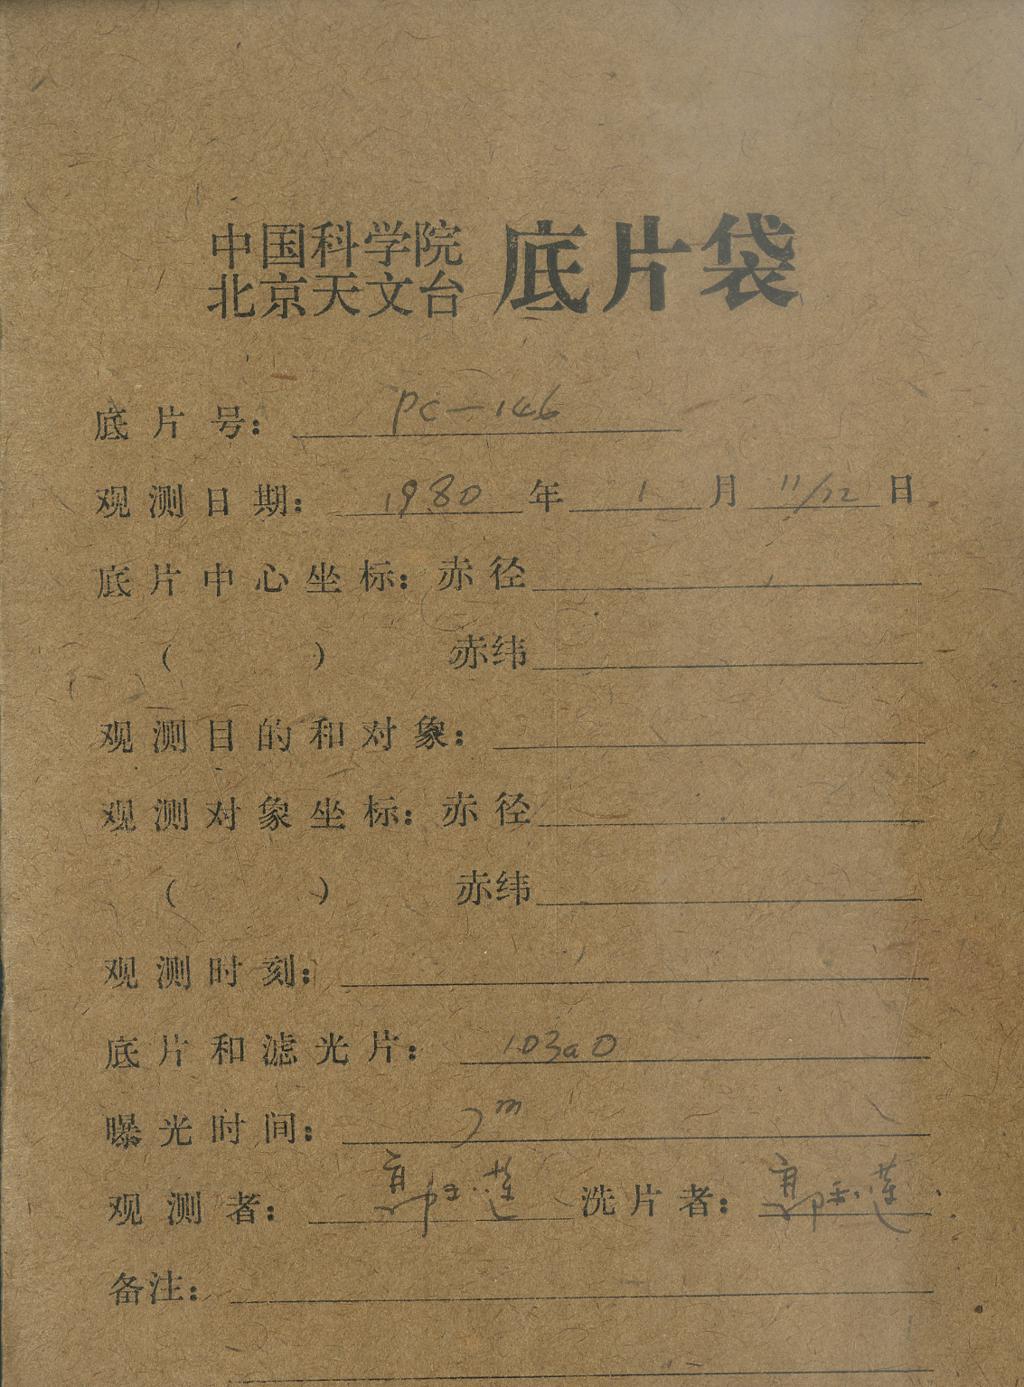 中国科学院
北京天文台 底片袋
底片号: pc-146
观测日期: 1980年 1月 11/12日
底片中心坐标: 赤径
( ) 赤纬
观测目的和对象:
观测对象坐标: 赤径
( ) 赤纬
观测时刻:
底片和滤光片: 103aO
曝光时间: m
观测者: 郭玉莲 洗片者: 郭玉莲
备注: